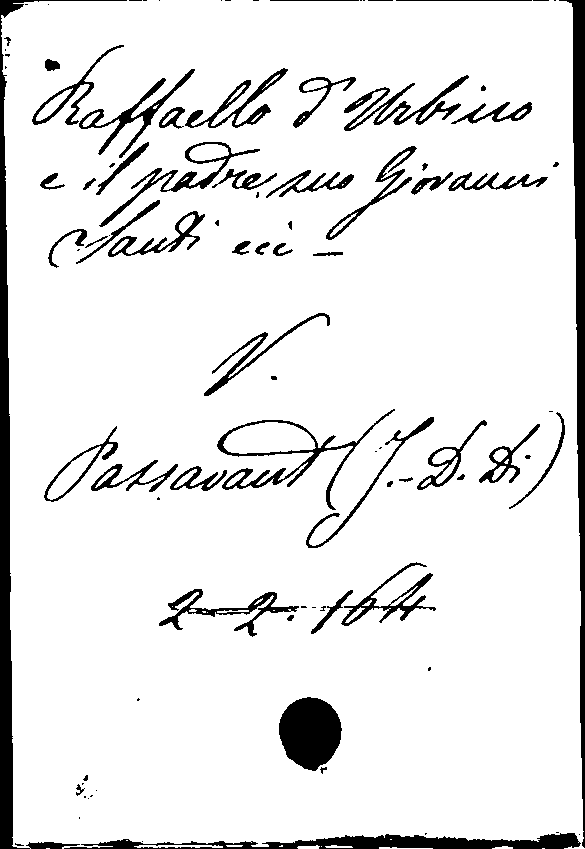 Raffaello d'Urbino
e il padre suo Giovanni
Santi ecc -
V.
Passavant (J.-D. Di)
2 2. 164